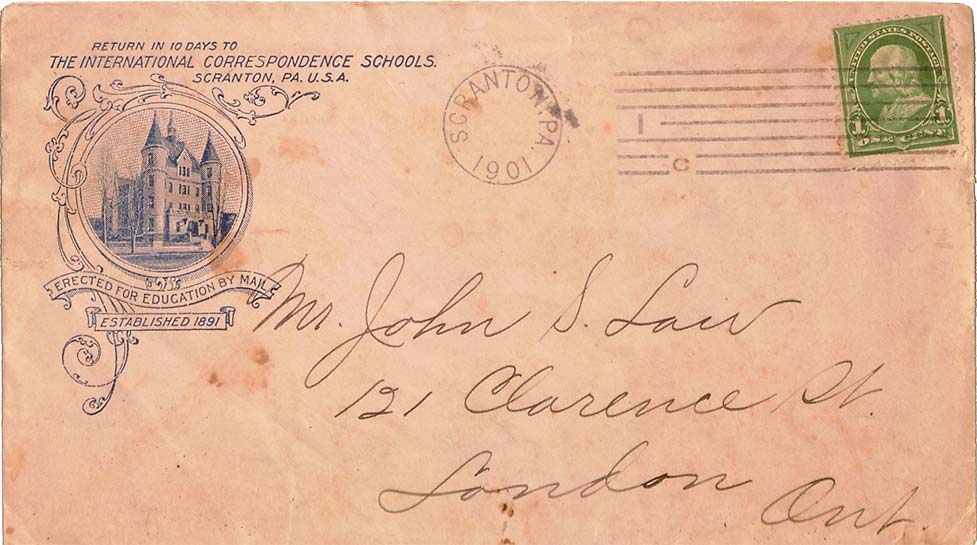 RETURN IN 10 DAYS TO
THE INTERNATIONAL CORRESPONDENCE SCHOOLS.
SCRANTON, PA. U.S.A.
ERECTED FOR EDUCATION BY MAIL
ESTABLISHED 1891
SCRANTON, PA.
1901
1
C
UNITED STATES POSTAGE
1 1
ONE CENT
Mr. John S. Law
121 Clarence St.
London
Ont.